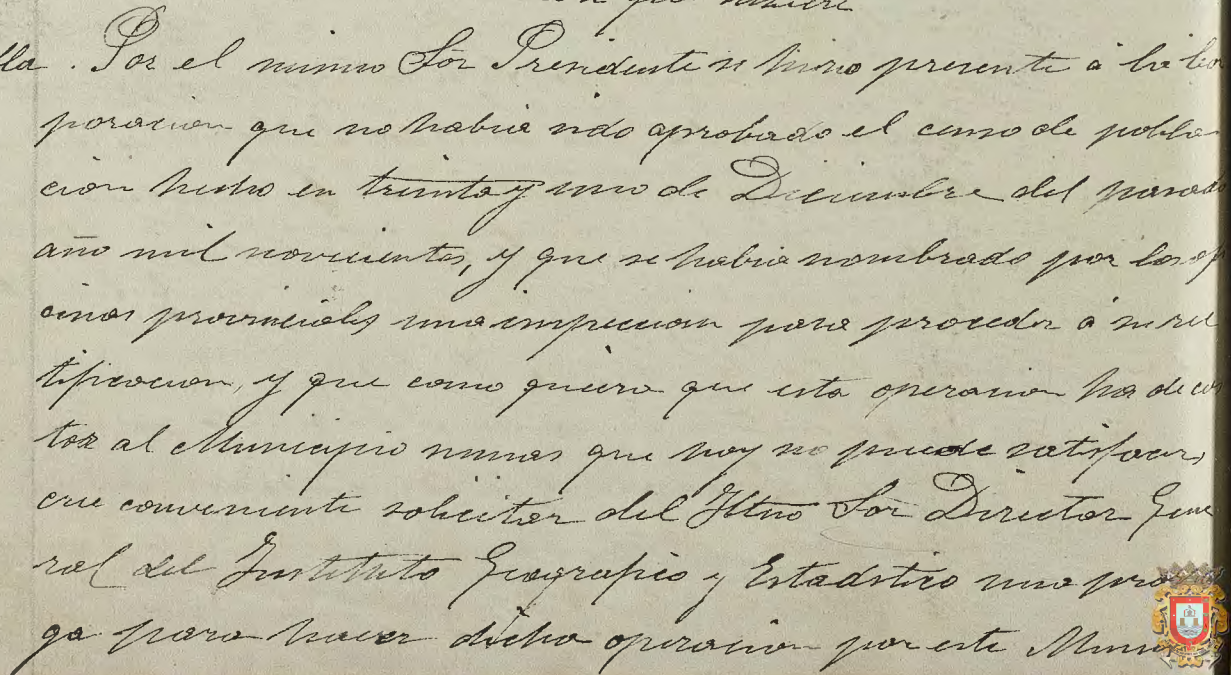 que
lla. Por el mismo Sor Presidente se hizo presente á la Cor
poracion que no habia sido aprobado el censo de pobla
cion hecho en treinta y uno de Diciembre del pasado
año mil novecientos, y que se habia nombrado por las ofi
cinas provinciales una inspeccion para proceder á su rec
tificacion, y que como quiera que esta operacion ha de cos
tar al Municipio sumas que hoy no puede satisfacer,
cree conveniente solicitar del Iltmo Sor Director Gene
ral del Instituto Geografico y Estadistico una pro
ga para hacer dicha operacion por este Muni